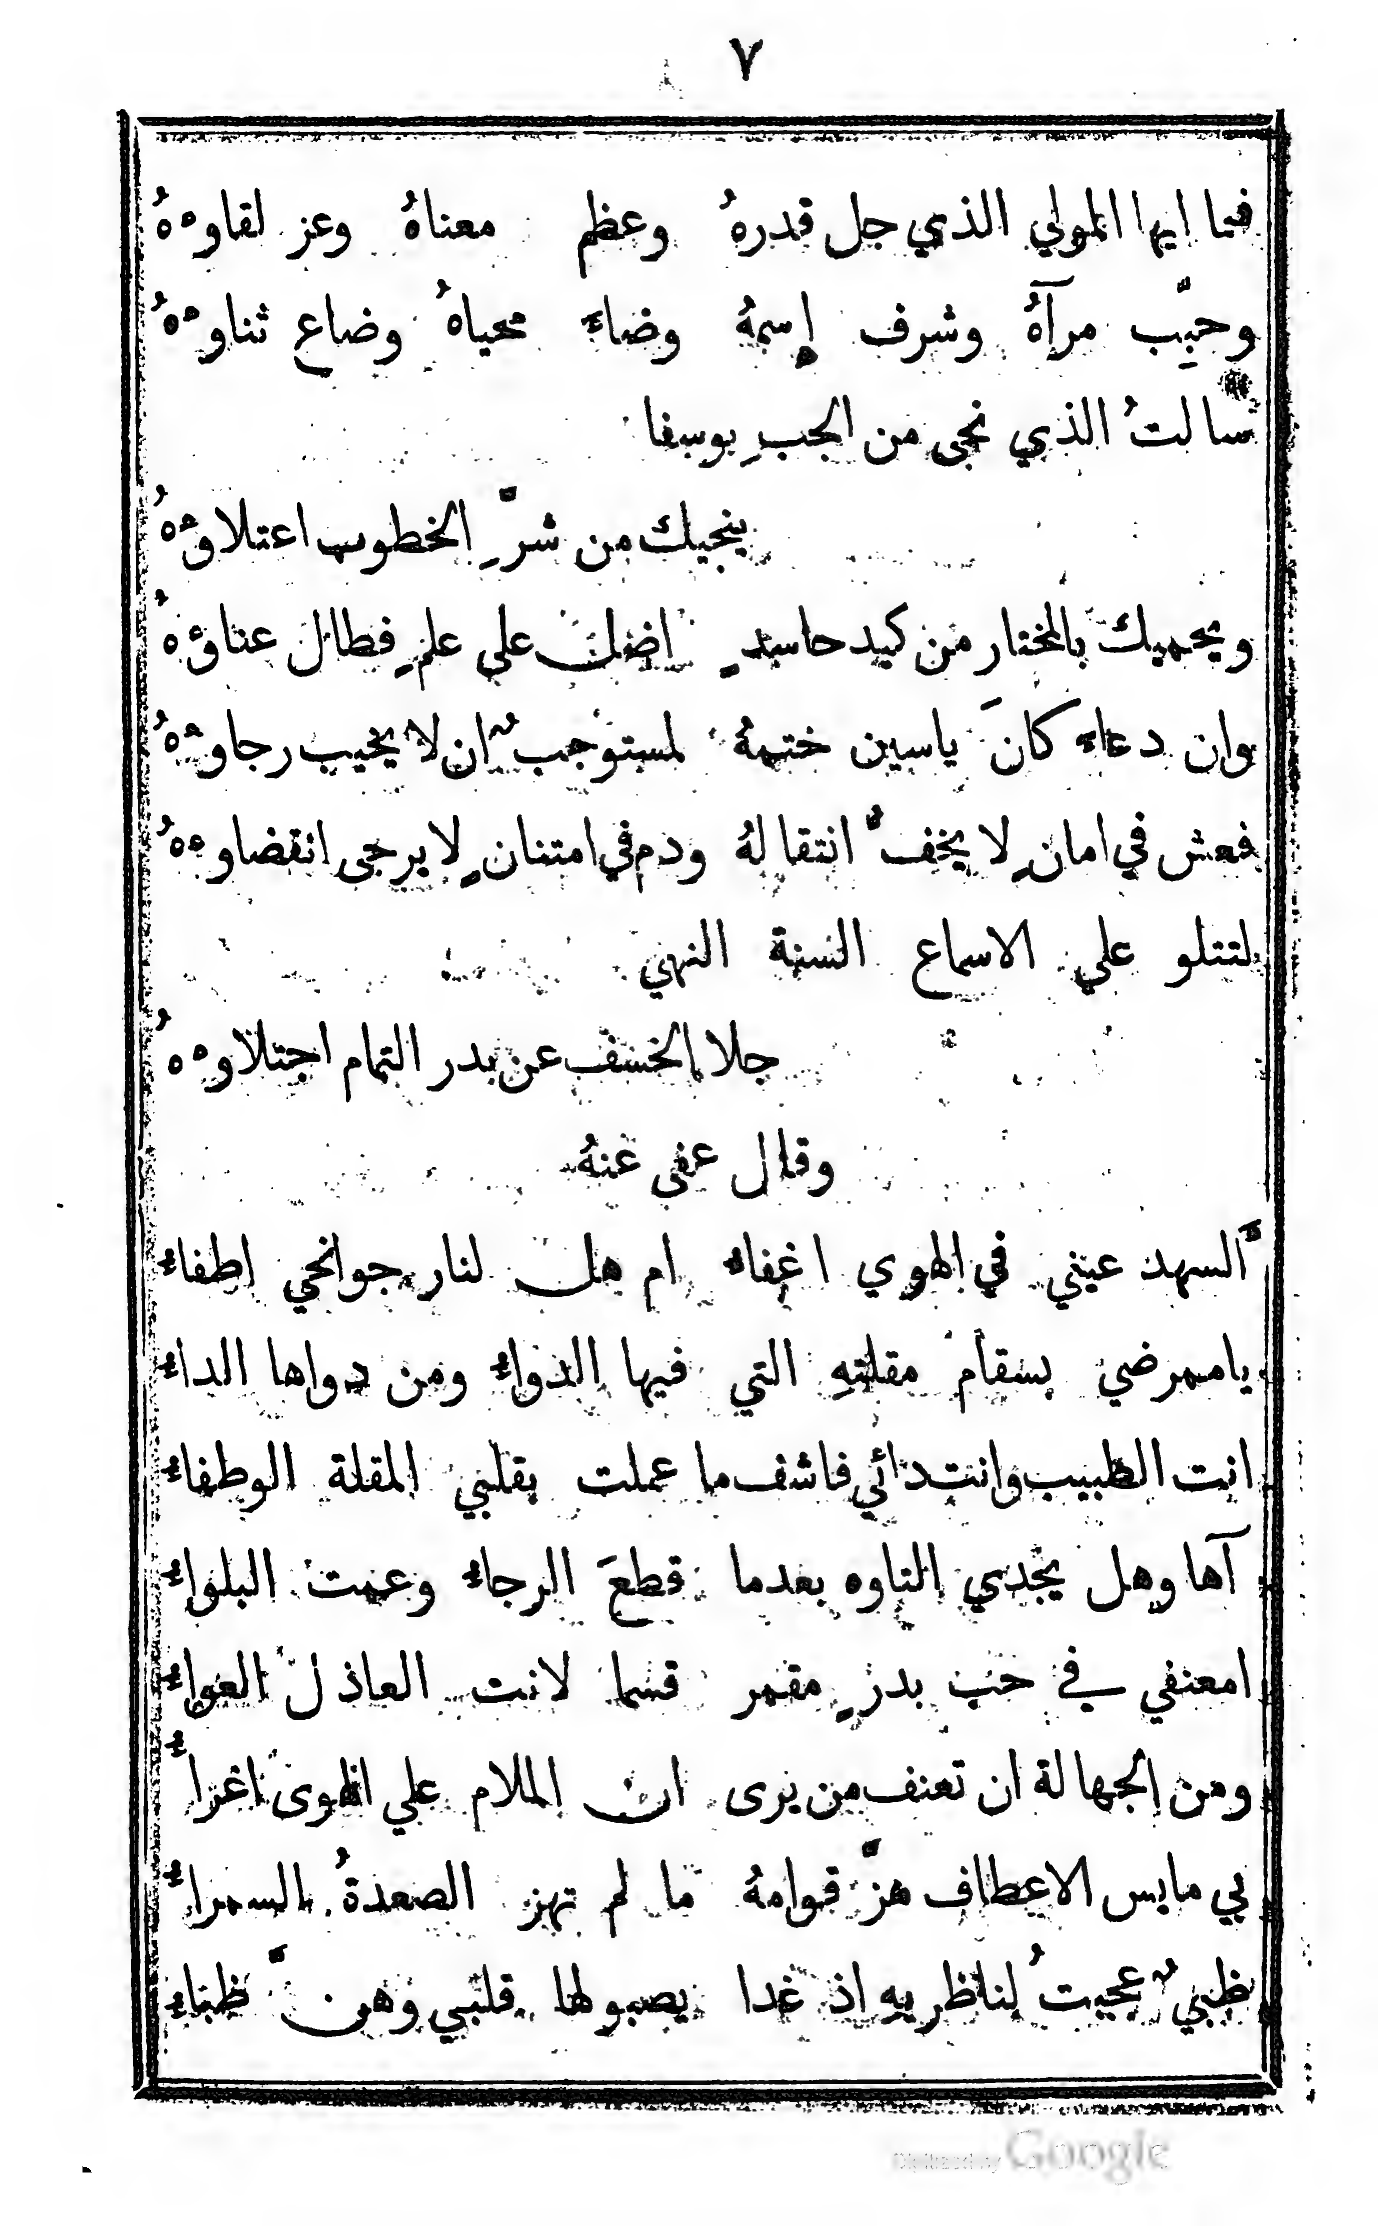 ٧
فيا ايها المولي الذي جل قدرهُ وعظم معناهُ وعز لقاوءهُ
وحبِّب مرآهُ وشرف إسمهُ وضاءَ محياهُ وضاع ثناوءهُ
سالتُ الذي نجى من الجبِ يوسفا
ينجيك من شرِّ الخطوب اعتلاؤهُ
ويحميك بالمختار من كيد حاسدٍ اضل على علمٍ فطال عناؤهُ
وان دعاء كانَ ياسين ختمهُ لمستوجبٌ ان لا يخيب رجاوءهُ
فعش في امانٍ لا يخفُّ انتقالهُ ودم في امتنانٍ لا يرجى انقضاوءهُ
لتتلو علي الاسماع السنة النهي
جلا الخسف عن بدر التمام اجتلاوءهُ
وقال عفى عنهُ
ألسهد عيني في الهوي اغفاء ام هل لنار جوانحي اطفاءُ
يا ممرضي بسقام مقلتهِ التي فيها الدواءُ ومن دواها الداءُ
انت الطبيب وانت دائي فاشف ما عملت بقلبي المقلة الوطفاءُ
آها وهل يجدي التاوه بعدما قطعَ الرجاءُ وعمت البلواءُ
امعنفي في حب بدرٍ مقمر قسما لانت العاذل العواءُ
ومن الجهالة ان تعنف من يرى ان الملام علي الهوى اغراءُ
بي مايس الاعطاف هزَّ قوامهُ ما لم تهز الصعدةُ السمراءُ
ظبيٌ عجبتُ لناظريه اذ غدا يصبو لها قلبي وهنَّ ظباءُ
Digitized by Google